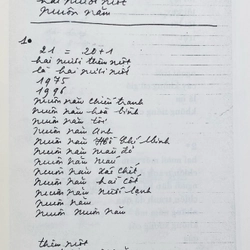 hai mươi một
muôn năm
1.
21 = 20+1
hai mươi thêm một
là hai mươi mốt
1975
1996
muôn năm chiến tranh
muôn năm hoà bình
muôn năm tôi
muôn năm anh
muôn năm Hồ Chí Minh
muôn năm mau đỏ
muôn năm máu
muôn năm xác chết
muôn năm hài cốt
muôn năm nuôi lạnh
muôn năm
muôn muôn năm
thêm một